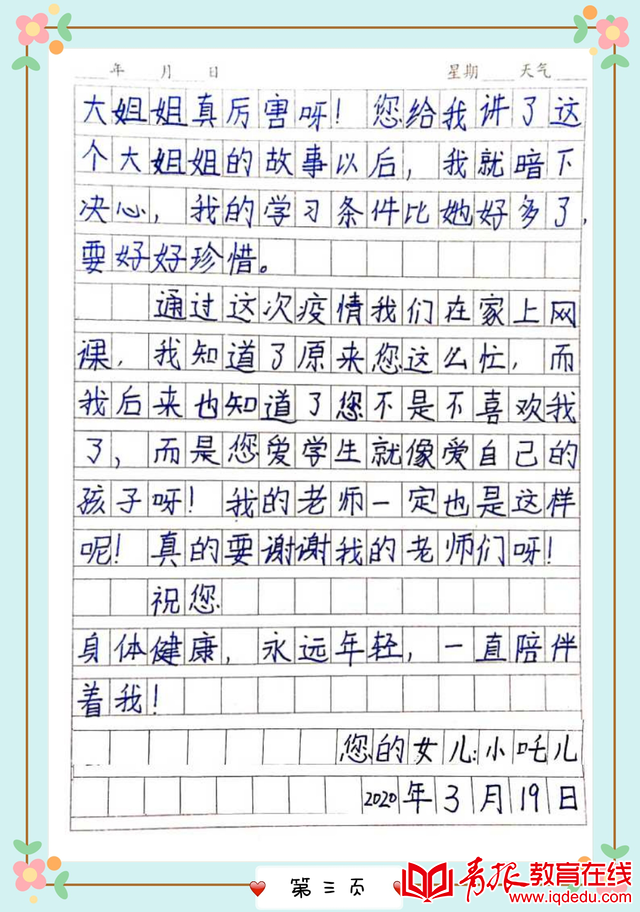 年 月 日 星期 天气
大姐姐真厉害呀！您给我讲了这
个大姐姐的故事以后，我就暗下
决心，我的学习条件比她好多了，
要好好珍惜。
通过这次疫情我们在家上网
课，我知道了原来您这么忙，而
我后来也知道了您不是不喜欢我
了，而是您爱学生就像爱自己的
孩子呀！我的老师一定也是这样
呢！真的要谢谢我的老师们呀！
祝您
身体健康，永远年轻，一直陪伴
着我！
您的女儿：小吒儿
2020年3月19日
第三页
青报教育在线
www.iqdedu.com